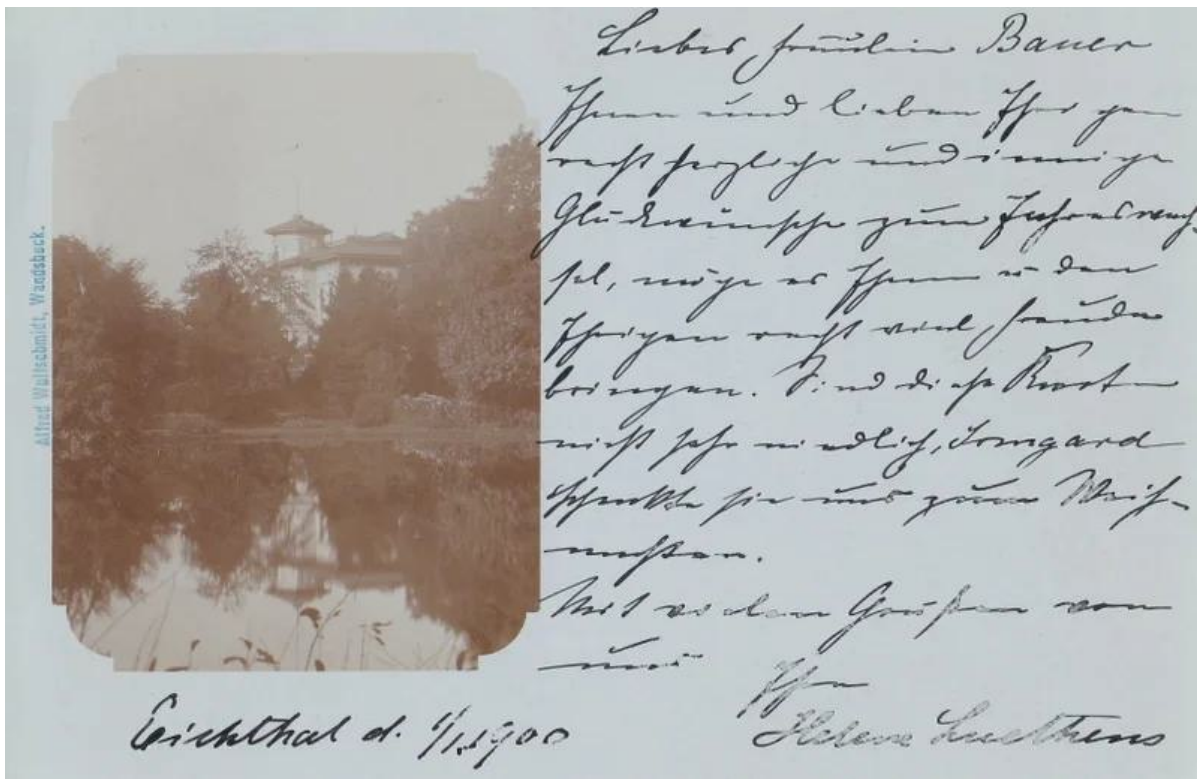 Alfred Waltschmidt, Wandsbeck.
Liebes Fräulein Bauer
Ihnen und lieben
recht herzliche und innige
Glückwünsche zum Jahreswech-
sel, möge es Ihnen u den
Ihrigen recht viel Freude
bringen. Sind diese Karten
nicht sehr niedlich, Irmgard
schenkte sie uns zum Weih-
nachten.
Mit vielen Grüßen von
uns
Ihre
Helene
Eichthal d. 1/1.1900